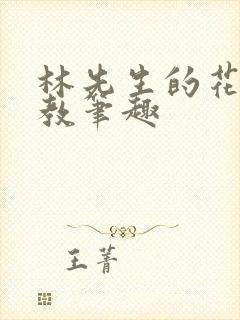 林先生的花
教笔趣
王菁